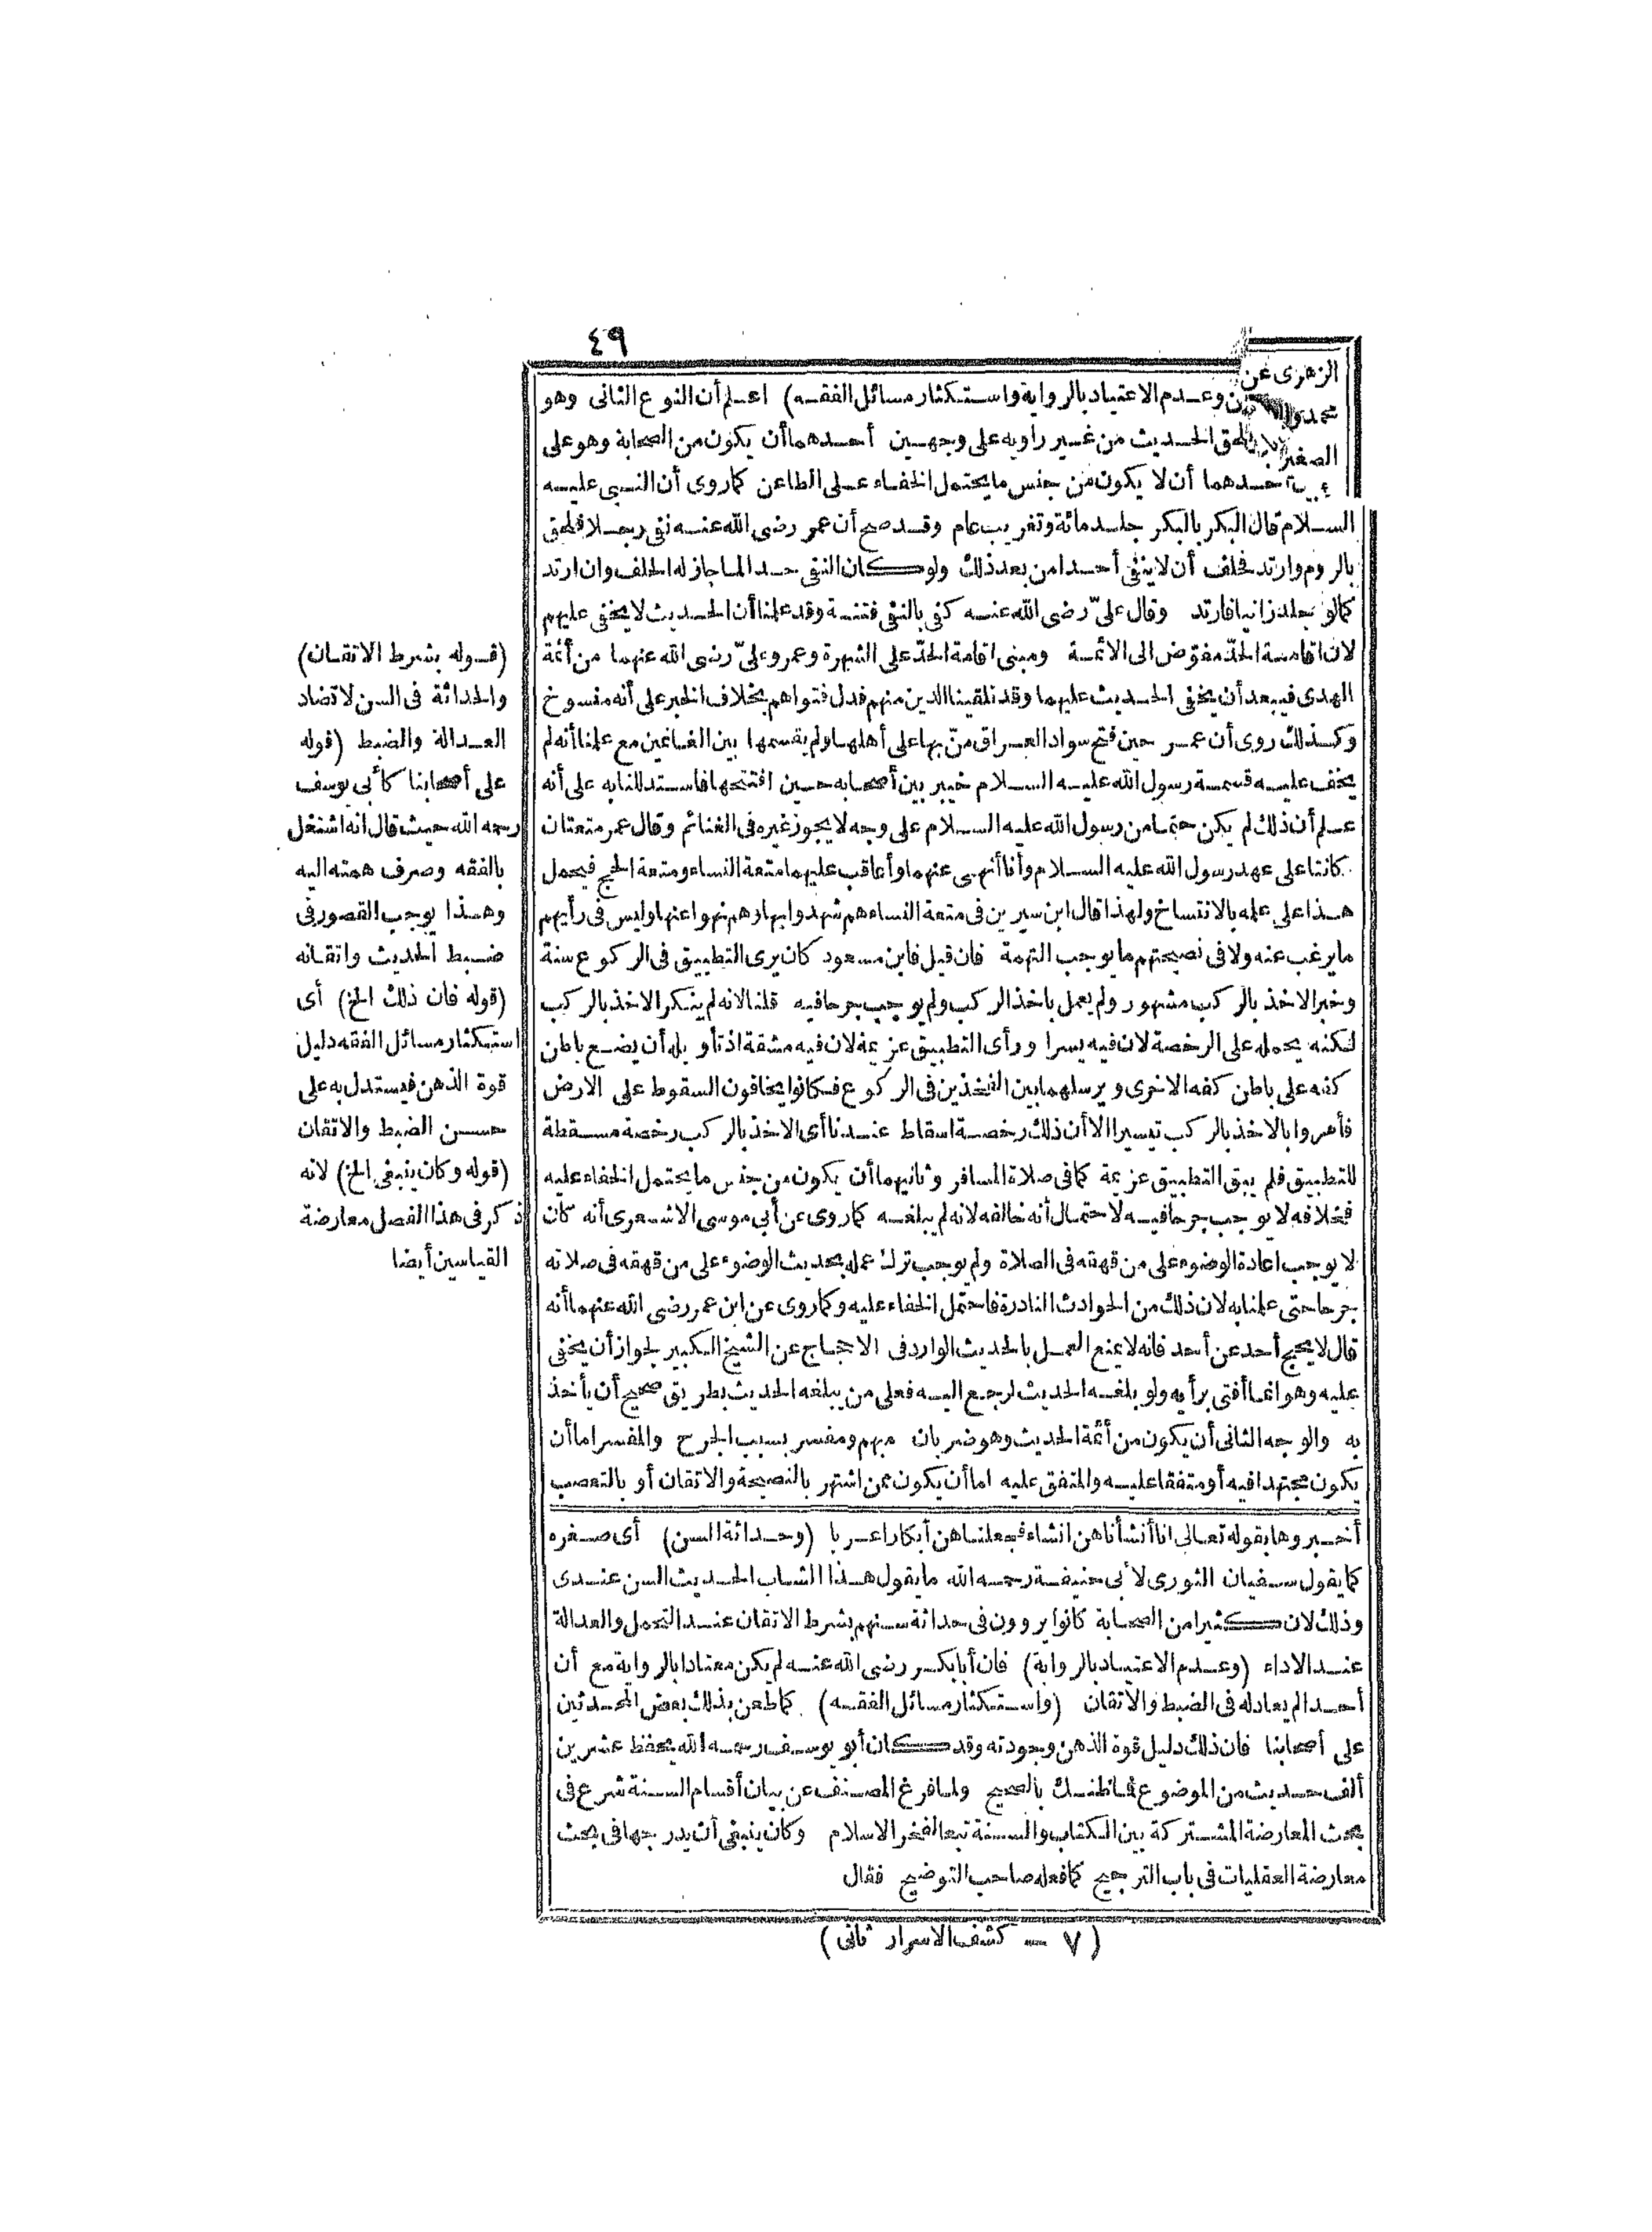 ٤٩
الزهرى عن
وعدم الاعتياد بالرواية واستكثار مسائل الفقه) اعلم أن النوع الثانى وهو
الحديث من غير راويه على وجهين أحدهما أن يكون من الصحابة وهو على
الصغير
أحدهما أن لا يكون من جنس ما يحتمل الخفاء على الطاعن كما روى أن النبى عليه
السلام قال البكر بالبكر جلد مائة وتغريب عام وقد صح أن عمر رضى الله عنه نفى رجلا فلحق
بالروم وارتد فحلف أن لا ينفى أحدا من بعد ذلك ولو كان النفى حدا لما جاز له الحلف وان ارتد
كما لو جلد زانيا فارتد وقال علىّ رضى الله عنه كفى بالنفى فتنة وقد علمنا أن الحديث لا يخفى عليهم
لان اقامة الحدّ مفوّض الى الائمة ومبنى اقامة الحدّ على الشهرة وعمر وعلىّ رضى الله عنهما من أئمة
الهدى فيبعد أن يخفى الحديث عليهما وقد تلقينا الدين منهم فدل فتواهم بخلاف الخبر على أنه منسوخ
وكذلك روى أن عمر حين فتح سواد العراق منّ بها على أهلها ولم يقسمها بين الغانمين مع علمنا أنه لم
يخف عليه قسمة رسول الله عليه السلام خيبر بين أصحابه حين افتتحها فاستدللنا به على أنه
علم أن ذلك لم يكن حتما من رسول الله عليه السلام على وجه لا يجوز غيره فى الغنائم وقال عمر متعتان
كانتا على عهد رسول الله عليه السلام وأنا أنهى عنهما وأعاقب عليهما متعة النساء ومتعة الحج فيحمل
هذا على علمه بالانتساخ ولهذا قال ابن سيرين فى متعة النساء هم شهدوا بها وهم نهوا عنها وليس فى رأيهم
ما يرغب عنه ولا فى نصيحتهم ما يوجب التهمة فان قيل فابن مسعود كان يرى التطبيق فى الركوع سنة
وخبر الاخذ بالركب مشهور ولم يعمل بأخذ الركب ولم يوجب جرحا فيه قلنا لانه لم ينكر الاخذ بالركب
لكنه يحمله على الرخصة لان فيه يسرا ورأى التطبيق عزيمة لان فيه مشقة اذ تأويله أن يضع باطن
كفه على باطن كفه الاخرى ويرسلهما بين الفخذين فى الركوع فكانوا يخافون السقوط على الارض
فأمروا بالاخذ بالركب تيسيرا الا أن ذلك رخصة اسقاط عندنا أى الاخذ بالركب رخصة مسقطة
للتطبيق فلم يبق التطبيق عزيمة كما فى صلاة المسافر وثانيهما أن يكون من جنس ما يحتمل الخفاء عليه
فخلافه لا يوجب جرحا فيه لاحتمال أنه خالفه لانه لم يبلغه كما روى عن أبى موسى الاشعرى أنه كان
لا يوجب اعادة الوضوء على من قهقه فى الصلاة ولم يوجب ترك عمله بحديث الوضوء على من قهقه فى صلاته
جرحا حتى علمنا به لان ذلك من الحوادث النادرة فاحتمل الخفاء عليه وكما روى عن ابن عمر رضى الله عنهما أنه
قال لا يحج أحد عن أحد فانه لا يمنع العمل بالحديث الوارد فى الاحجاج عن الشيخ الكبير لجواز أن يخفى
عليه وهو انما أفتى برأيه ولو بلغه الحديث لرجع اليه فعلى من يبلغه الحديث بطريق صحيح أن يأخذ
به والوجه الثانى أن يكون من أئمة الحديث وهو ضربان مبهم ومفسر بسبب الجرح والمفسر اما أن
يكون مجتهدا فيه أو متفقا عليه والمتفق عليه اما أن يكون ممن اشتهر بالنصيحة والاتقان أو بالتعصب
أخبروها بقوله تعالى انا أنشأناهن انشاء فجعلناهن أبكارا عربا (وحداثة السن) أى صغره
كما يقول سفيان الثورى لأبى حنيفة رحمه الله ما يقول هذا الشاب الحديث السن عندى
وذلك لان كثيرا من الصحابة كانوا يروون فى حداثة سنهم بشرط الاتقان عند التحمل والعدالة
عند الاداء (وعدم الاعتياد بالرواية) فان أبا بكر رضى الله عنه لم يكن معتادا بالرواية مع أن
أحدا لم يعادله فى الضبط والاتقان (واستكثار مسائل الفقه) كما طعن بذلك بعض المحدثين
على أصحابنا فان ذلك دليل قوة الذهن وجودته وقد كان أبو يوسف رحمه الله يحفظ عشرين
ألف حديث من الموضوع فما ظنك بالصحيح ولما فرغ المصنف عن بيان أقسام السنة شرع فى
بحث المعارضة المشتركة بين الكتاب والسنة تبعا لفخر الاسلام وكان ينبغى أن يدرجها فى بحث
معارضة العقليات فى باب الترجيح كما فعله صاحب التوضيح فقال
(قوله بشرط الاتقان)
والحداثة فى السن لا تضاد
العدالة والضبط (قوله
على أصحابنا كأبى يوسف
رحمه الله حيث قال انه اشتغل
بالفقه وصرف همته اليه
وهذا يوجب القصور فى
ضبط الحديث واتقانه
(قوله فان ذلك الخ) أى
استكثار مسائل الفقه دليل
قوة الذهن فيستدل به على
حسن الضبط والاتقان
(قوله وكان ينبغى الخ) لانه
ذكر فى هذا الفصل معارضة
القياسين أيضا
(٧ – كشف الاسرار ثانى)